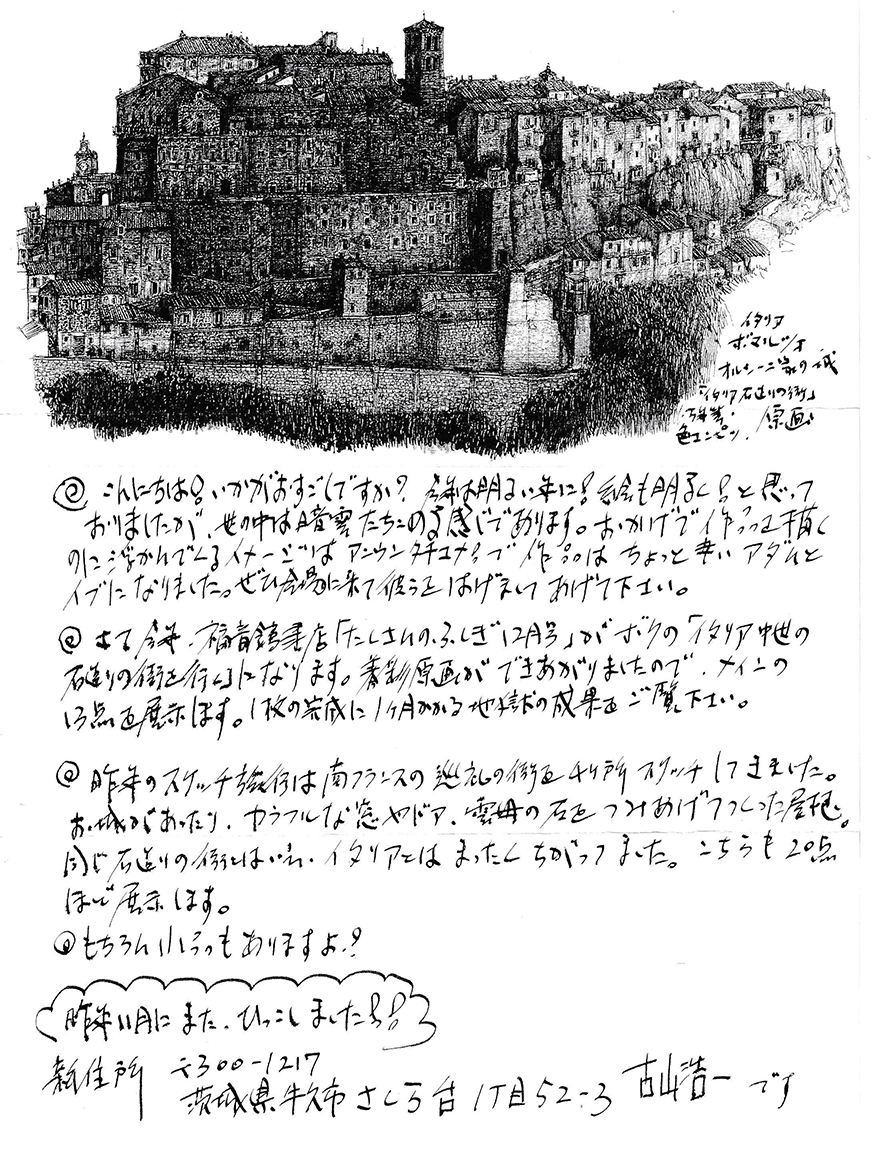 イタリア
ボマルツォ
オルシーニ家の城
「イタリア石造りの街」
万年筆・
色エンピツ. 原画
@ こんにちは!いかがおすごしですか? 今年は明るい年に!絵も明るく!と思って
おりましたが、世の中は暗雲たちこめる感じであります。おかげで作品を描く
のに浮かんでくるイメージは アンウンタチコメ!で作品は ちょっと辛い アダムと
イブになりました。ぜひ会場に来て彼らを はげまして あげて下さい。
@ さて 今年、福音館書店「たくさんのふしぎ12月号」が ボクの「イタリア中世の
石造りの街を行く」になります。着彩原画が できあがりましたので、メインの
13点を展示します。1枚の完成に1ヶ月かかる地獄の成果を ご覧下さい。
@ 昨年のスケッチ旅行は南フランスの 巡礼の街を 4ヶ所 スケッチしてきました。
お城があったり、カラフルな窓やドア、雲母の石を つみあげてつくった屋根。
同じ石造りの街とはいえ、イタリアとは まったく ちがってました。こちらも 20点
ほど展示します。
@ もちろん 小品もありますよ!
昨年11月に また、ひっこしましたぁ!
新住所 〒300-1217
茨城県牛久市 さくら台 1丁目52-3 古山浩一 です